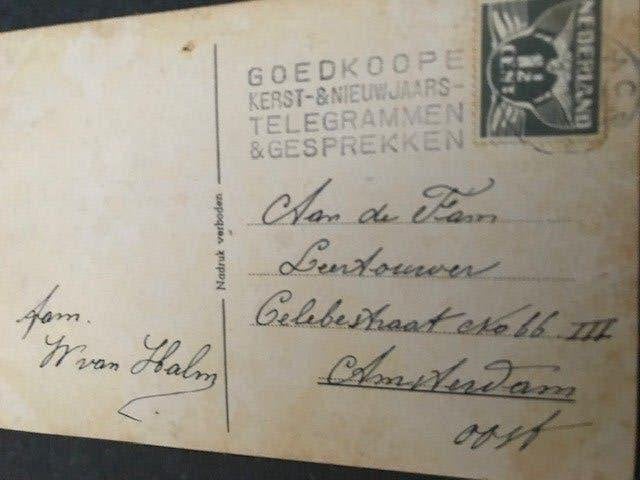 GOEDKOOPE
KERST-&NIEUWJAARS-
TELEGRAMMEN
&GESPREKKEN
NEDERLAND
1½
CENT
Nadruk verboden
Aan de Fam
Leertouwer
Celebestraat No 66 III
Amsterdam
oost
fam.
W van Halm